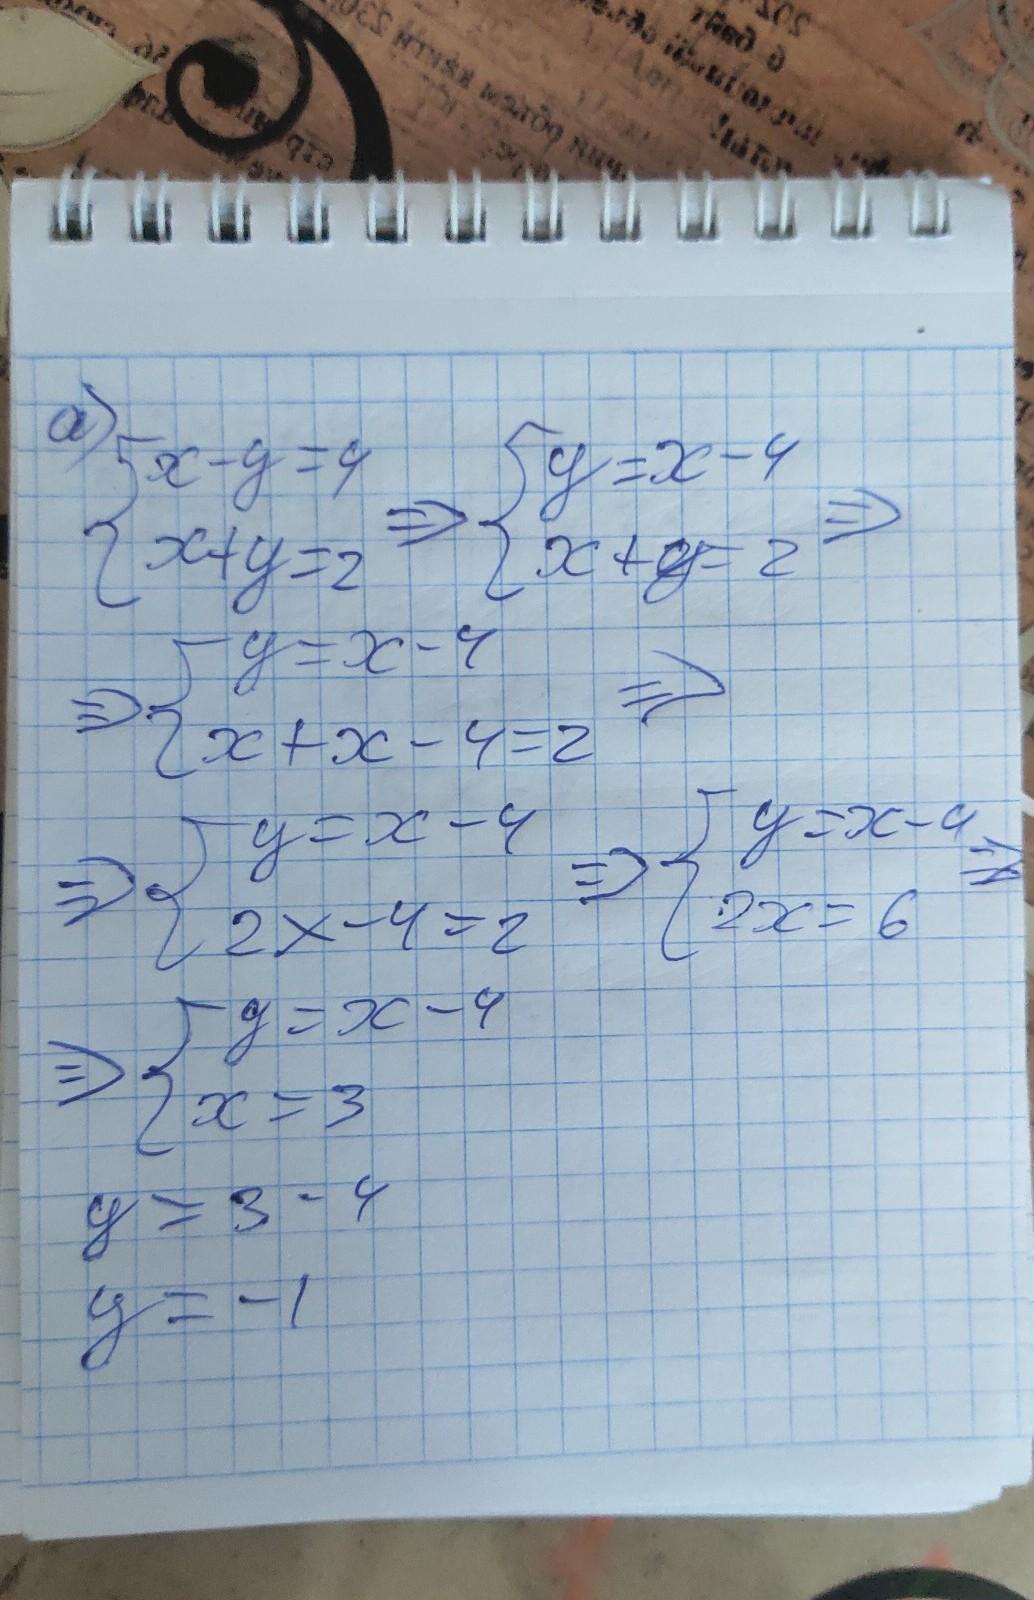 а) { x - y = 4 ⇒ { y = x - 4 ⇒
x + y = 2 x + y = 2
⇒ { y = x - 4 ⇒
x + x - 4 = 2
⇒ { y = x - 4 ⇒ { y = x - 4 ⇒
2x - 4 = 2 2x = 6
⇒ { y = x - 4
x = 3
y = 3 - 4
y = -1